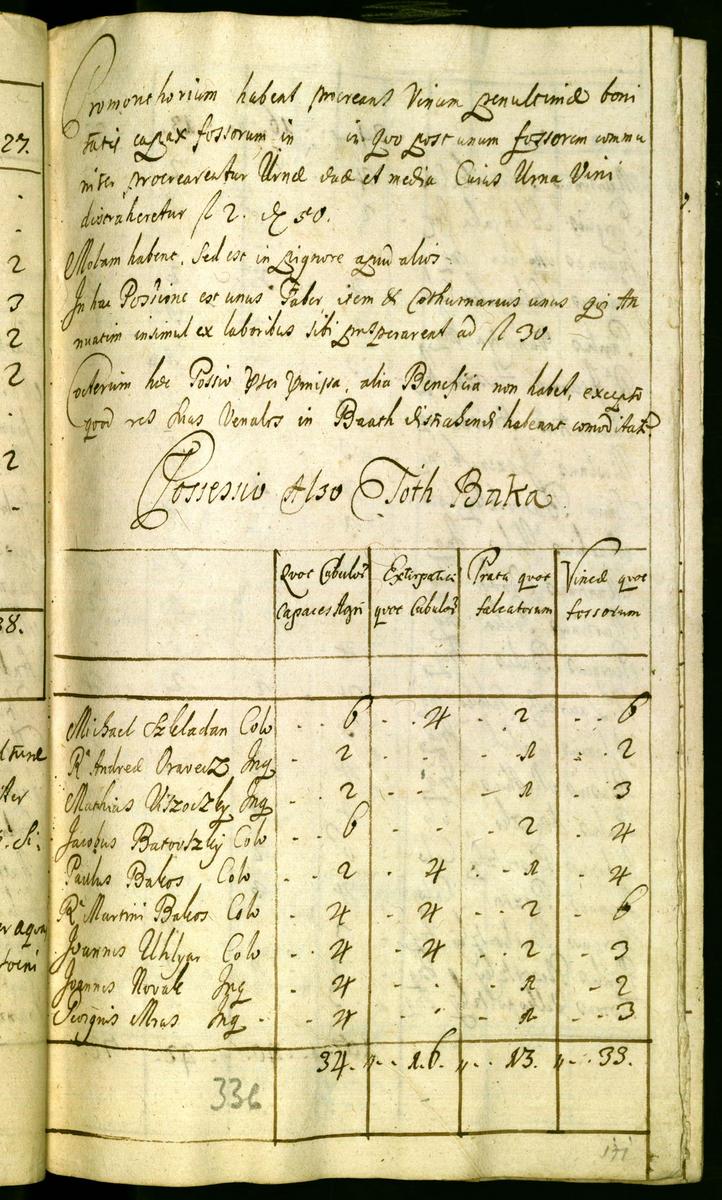 27.
2
3
2
2
2
38.
Promonthorium habent procreans Vinum penultimæ boni
tatis capax fossorum in in quo post unum fossorem commu
niter procrearentur Urnæ duæ et media Cuius Urna Vini
distraheretur fl 2. 50.
Molam habent, sed est in pignore apud alios
In hac Poss̄ione est unus Faber item & Cothurnarius unus qui An
nuatim insimul ex laboribus sibi prosperarent ad fl 30.
Cæterum hæc Possio præter præmissa, alia Beneficia non habet, excepto
quod res suas Venales in Baath distrahendi habeant comoditatē
Possessio Also Toth Baka
Quot Cubulor̄ Extirpatici Prata quot Vineæ quot
Capaces Agri quot Cubulor̄ falcatorum fossorum
Michael Szkladan Colo - - 6 - - 4 - - 2 - - 6
Rᵃ Andreæ Oravecz Inq - 2 - - - 1 - - 2
Mathias Viszoczky Inq - 2 - - - 1 - 3
Jacobus Batovszky Colo - 6 - - - 2 - 4
Paulus Bakos Colo - - 2 - 4 - - 1 - - 4
Rᵃ Martini Bakos Colo - 4 - 4 - - 2 - 6
Joannes Uhlyar Colo - 4 - 4 - - 2 - 3
Joannes Novak Inq - 4 - - - 1 - 2
Georgius Mras Inq - - 4 - - - 1 - - 3
34. „ - - 16. „ - - 13. „ - - 33.
336
171